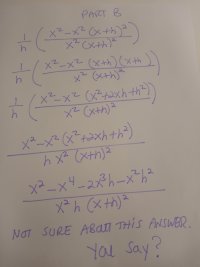 PART B
1/h ( (x² - x² (x+h)²) / (x² (x+h)²) )
1/h ( (x² - x² (x+h)(x+h)) / (x² (x+h)²) )
1/h ( (x² - x² (x²+2xh+h²)) / (x² (x+h)²) )
(x² - x² (x²+2xh+h²)) / (h x² (x+h)²)
(x² - x⁴ - 2x³h - x²h²) / (x²h (x+h)²)
NOT SURE ABOUT THIS ANSWER.
You SAY?